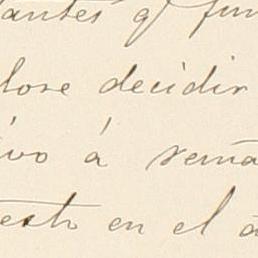 antes qe fun
lose decidir
ivo á rema
esto en el a